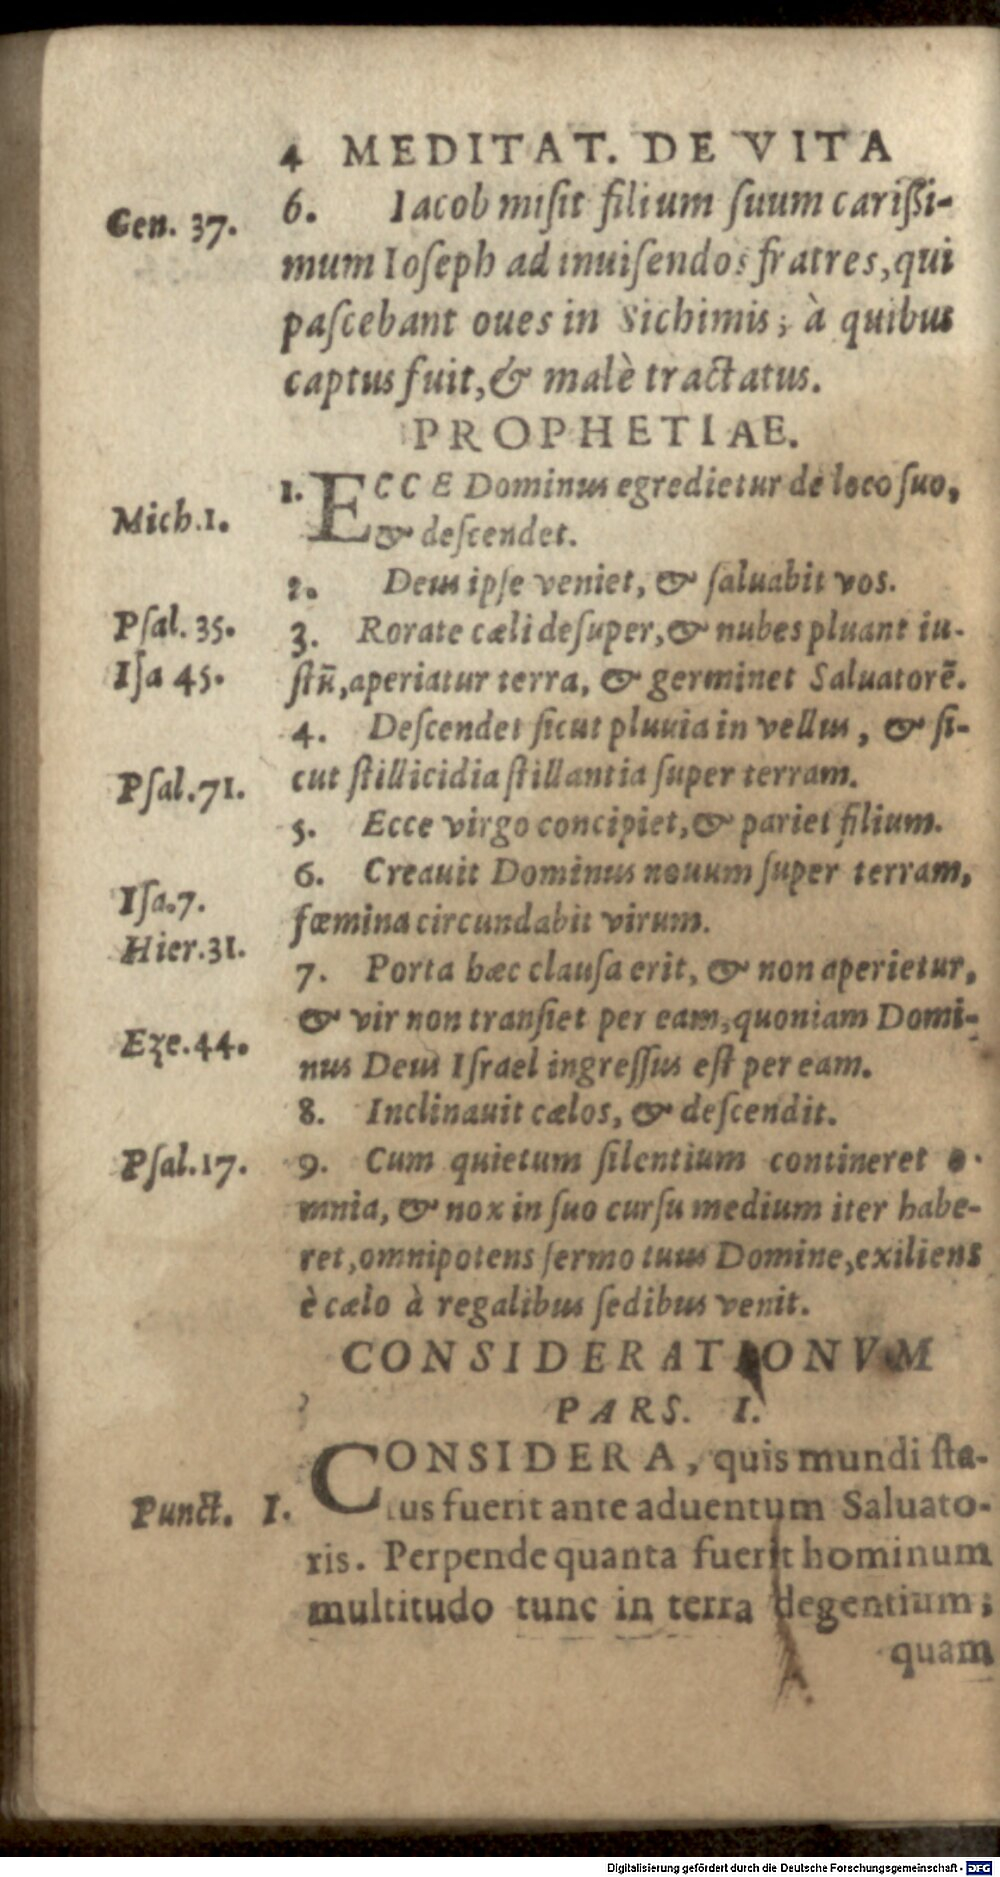 4 MEDITAT. DE VITA
Gen. 37. 6. Iacob misit filium suum carißi-
mum Ioseph ad inuisendos fratres, qui
pascebant oues in Sichimis; à quibus
captus fuit, & malè tractatus.
PROPHETIAE.
1. ECCE Dominus egredietur de loco suo,
Mich. 1. & descendet.
2. Deus ipse veniet, & saluabit vos.
Psal. 35. 3. Rorate cæli desuper, & nubes pluant iu-
Isa 45. stũ, aperiatur terra, & germinet Saluatorẽ.
4. Descendet sicut pluuia in vellus, & si-
Psal. 71. cut stillicidia stillantia super terram.
5. Ecce virgo concipiet, & pariet filium.
Isa. 7. 6. Creauit Dominus nouum super terram,
Hier. 31. fœmina circundabit virum.
7. Porta hæc clausa erit, & non aperietur,
Eze. 44. & vir non transiet per eam, quoniam Domi-
nus Deus Israel ingressus est per eam.
8. Inclinauit cælos, & descendit.
Psal. 17. 9. Cum quietum silentium contineret o-
mnia, & nox in suo cursu medium iter habe-
ret, omnipotens sermo tuus Domine, exiliens
è cælo à regalibus sedibus venit.
CONSIDERATIONVM
PARS. I.
CONSIDERA, quis mundi sta-
Punct. I. tus fuerit ante aduentum Saluato-
ris. Perpende quanta fuerit hominum
multitudo tunc in terra degentium;
quam
Digitalisierung gefördert durch die Deutsche Forschungsgemeinschaft - DFG